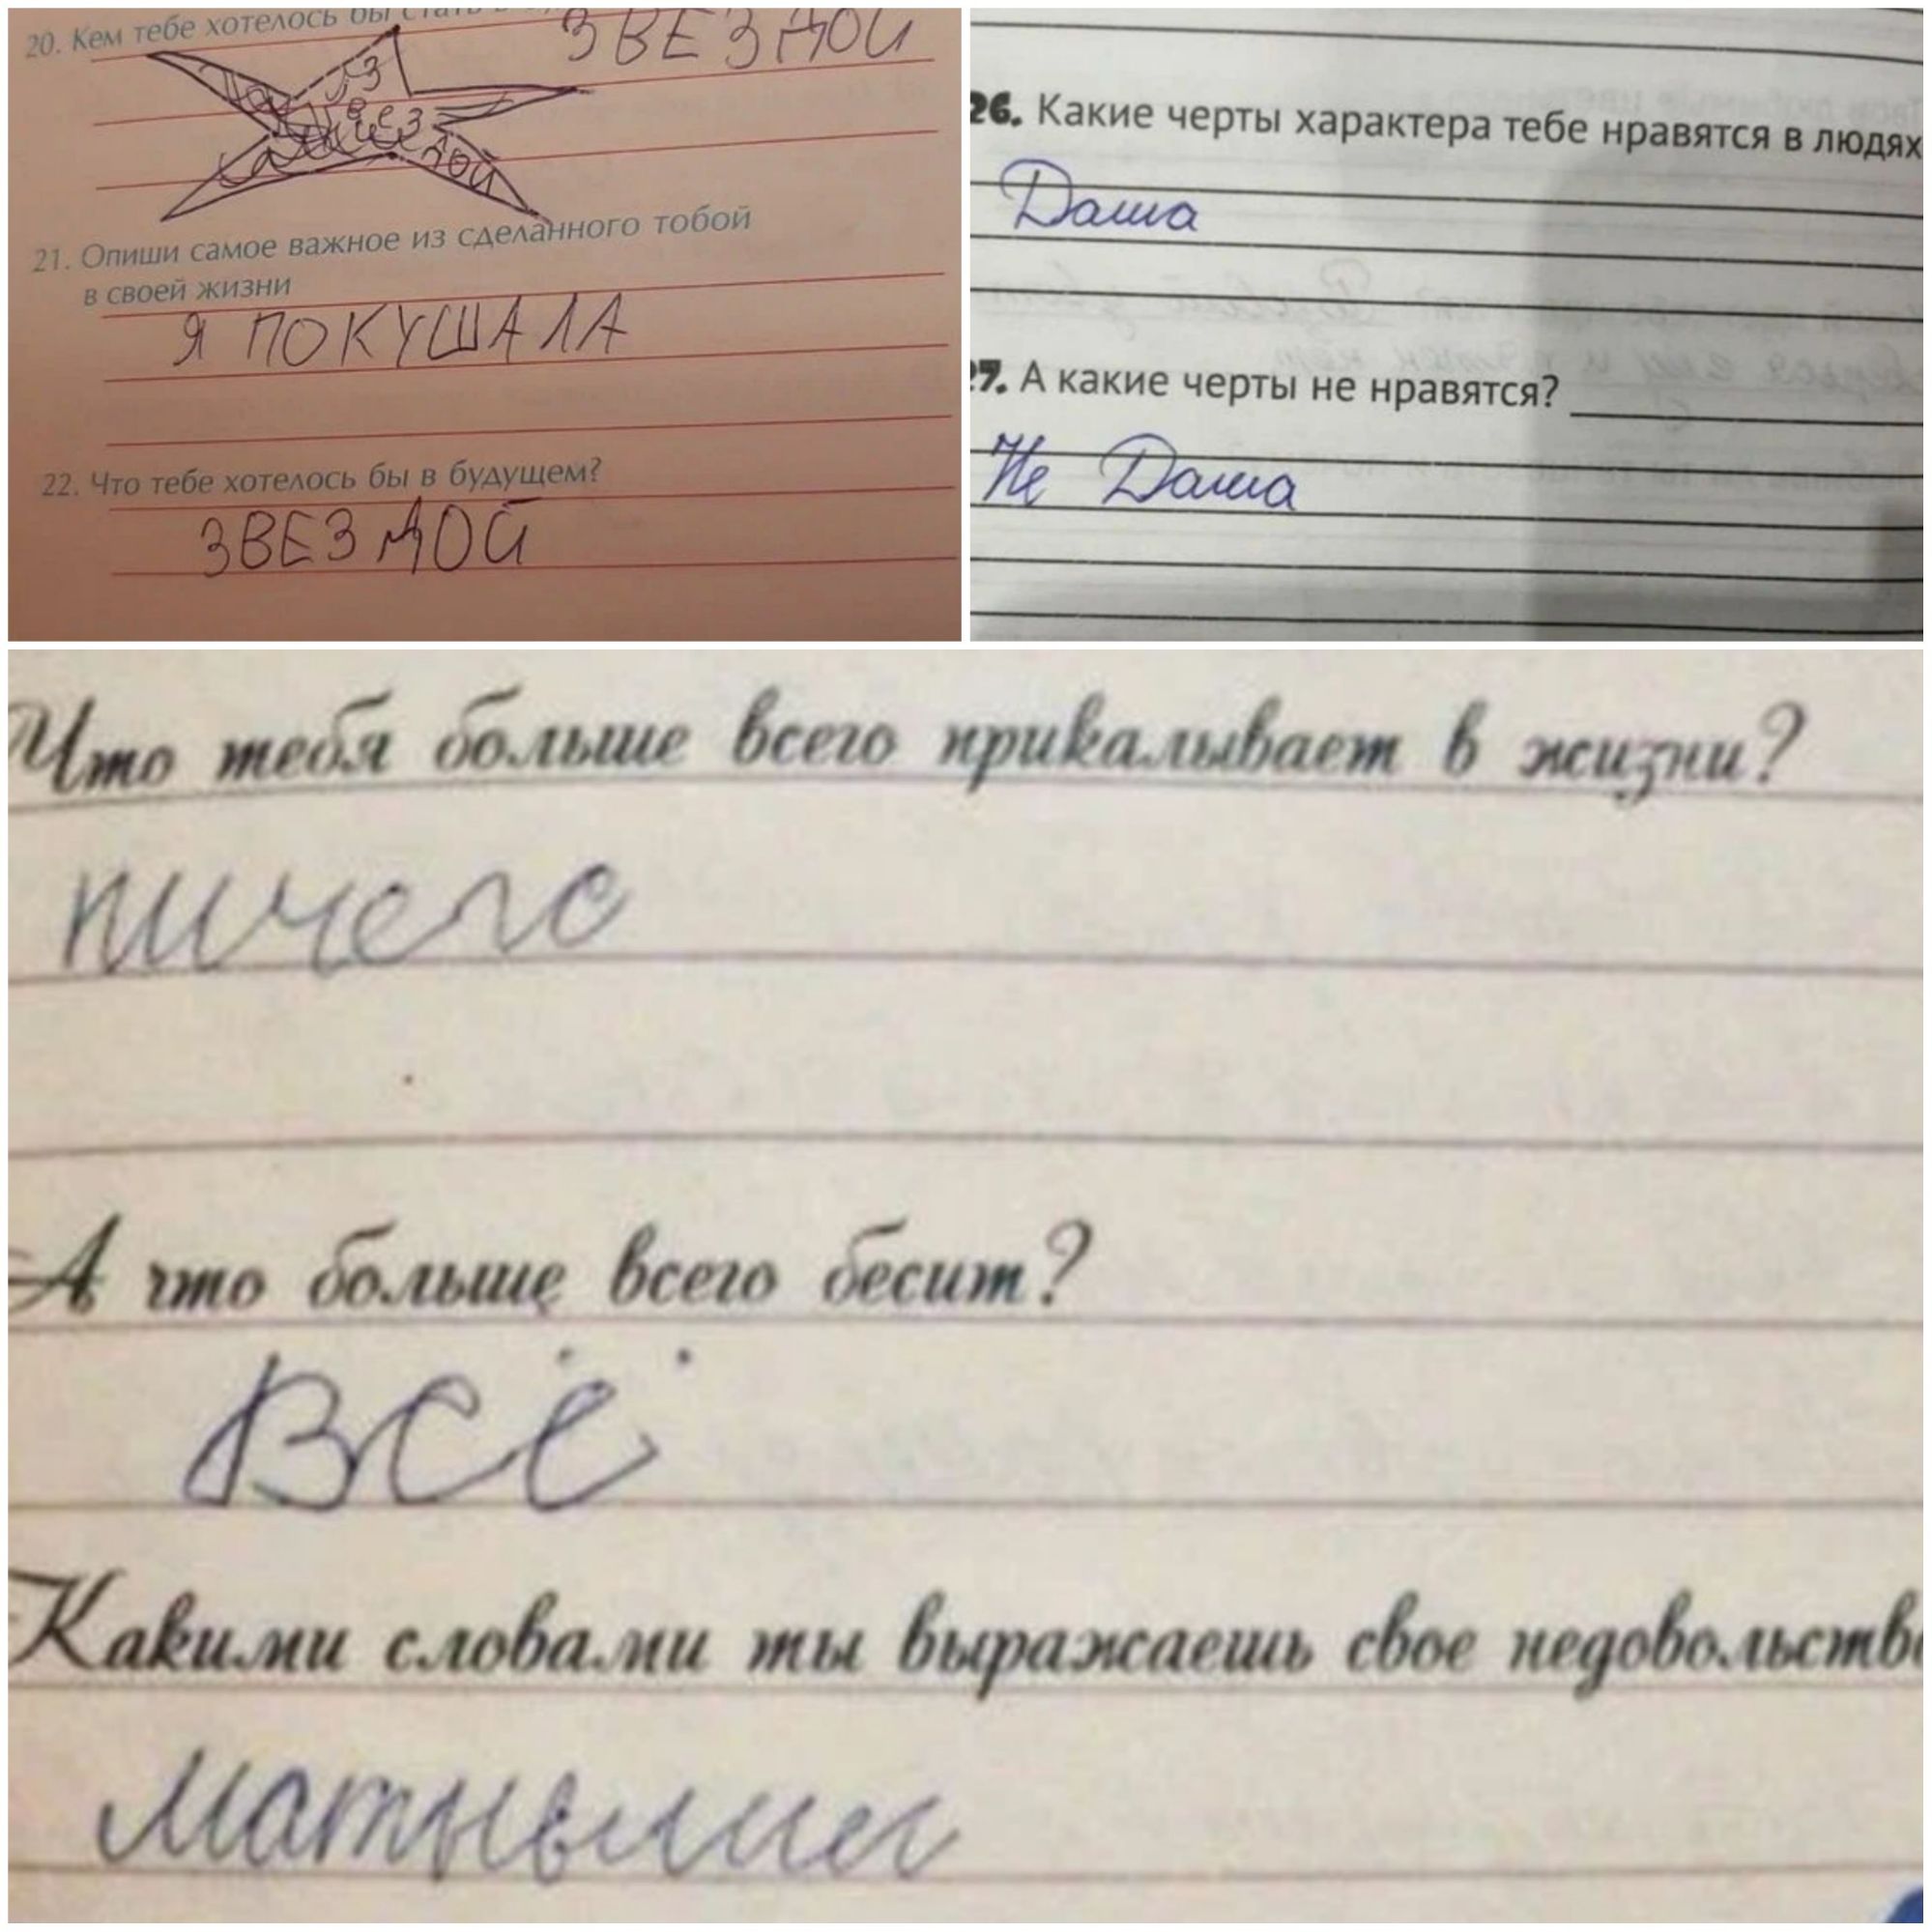 20. Кем тебе хотелось бы стать в
ЗВЕЗДОЙ
21. Опиши самое важное из сделанного тобой
в своей жизни
Я ПОКУШАЛА
22. Что тебе хотелось бы в будущем?
ЗВЕЗДОЙ
26. Какие черты характера тебе нравятся в людях
Даша
27. А какие черты не нравятся?
Не Даша
Что тебя больше всего прикалывает в жизни?
ничего
А что больше всего бесит?
ВСЁ
Какими словами ты выражаешь свое недовольство
матными